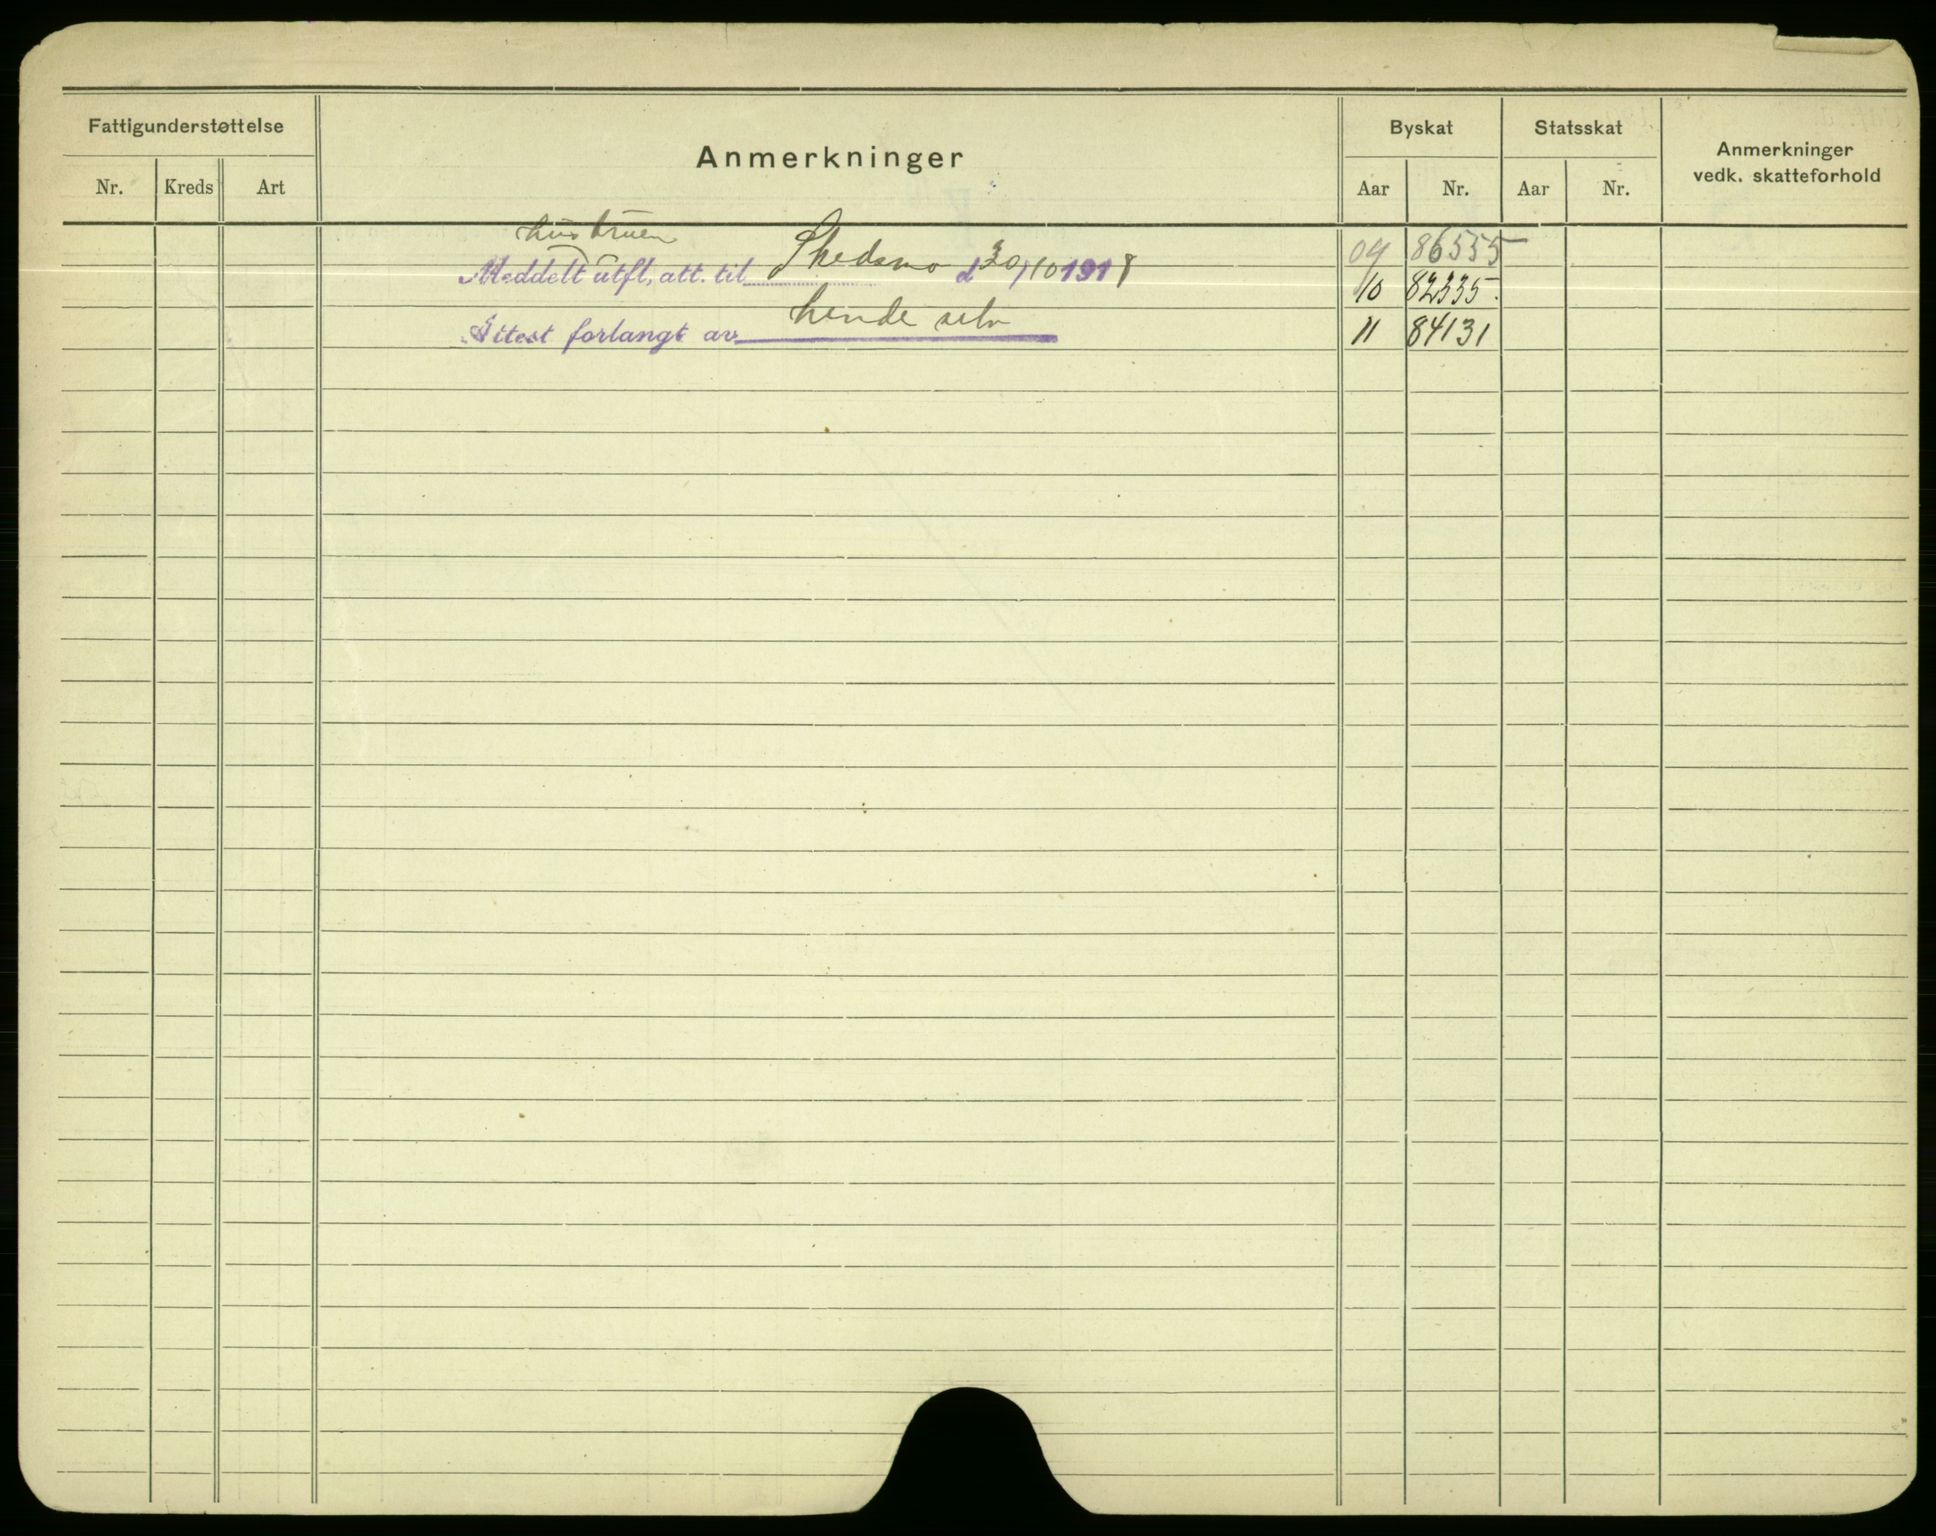 Fattigunderstøttelse
Anmerkninger
Byskat
Statsskat
Anmerkninger
vedk. skatteforhold
Nr.
Kreds
Art
Aar
Nr.
Aar
Nr.
hustruen
Meddelt utfl. att. til Skedsmo d 30/10 1918
Attest forlangt av hende selv
09 86555
10 82335.
11 84131